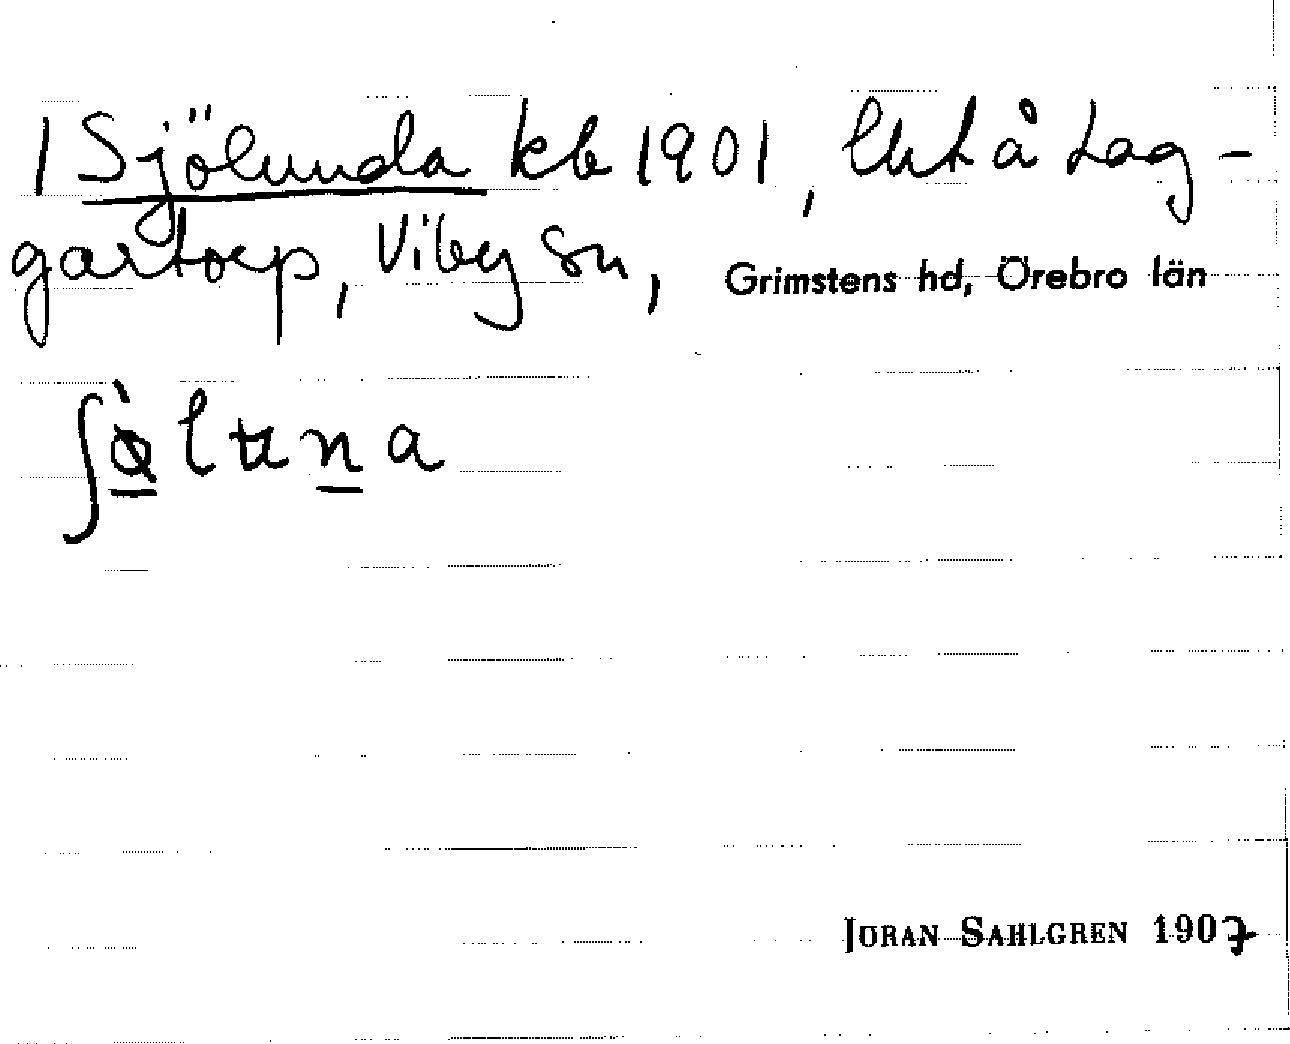 1 Sjölunda kb 1901, lht å Lag-
gartorp, Viby sn, Grimstens hd, Örebro län
JÖRAN SAHLGREN 1907